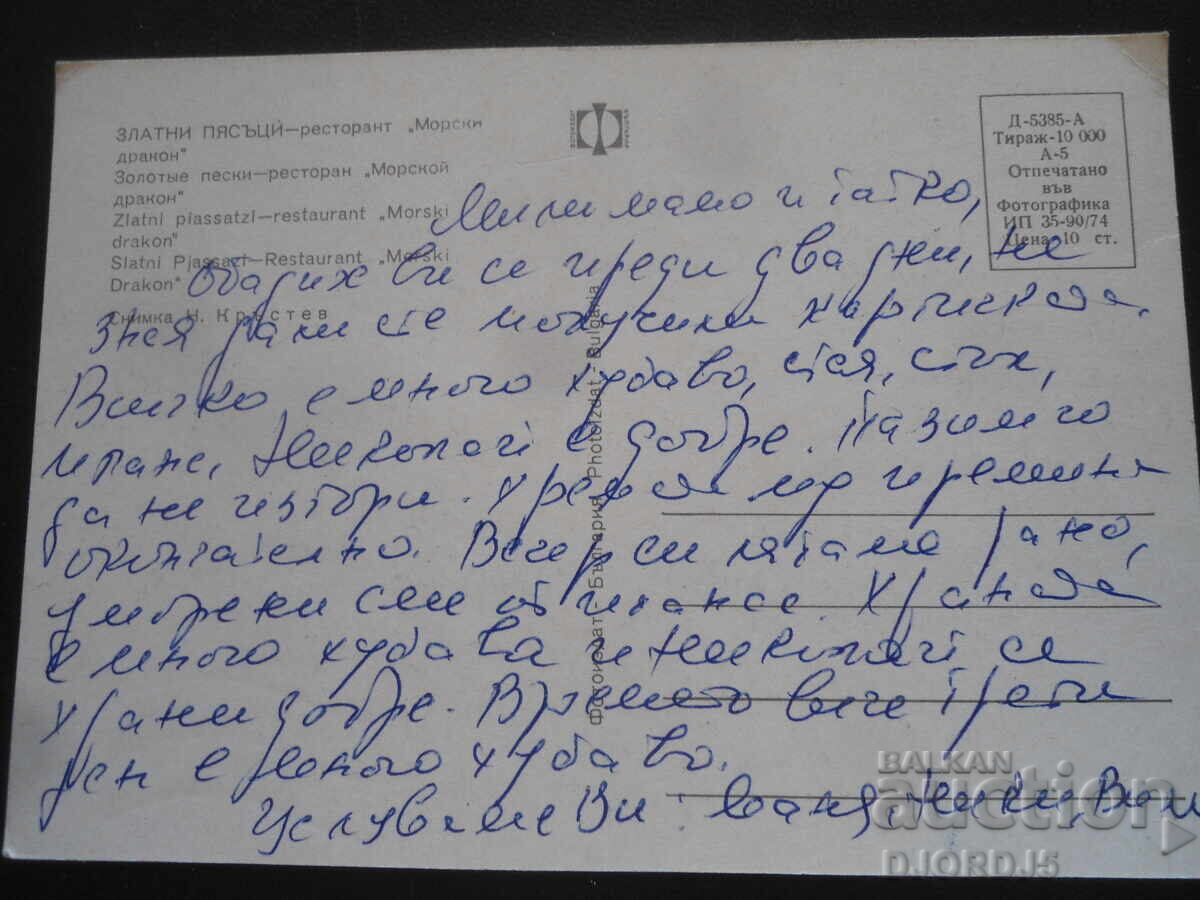 ЗЛАТНИ ПЯСЪЦИ—ресторант „Морски
дракон"
Золотые пески—ресторан „Морской
дракон"
Zlatni piassatzi—restaurant „Morski
drakon"
Slatni Pjassazi—Restaurant „Morski
Drakon"
Снимка Н. Кръстев
Д-5385-А
Тираж-10 000
А-5
Отпечатано
във
Фотографика
ИП 35-90/74
Цена 10 ст.
Фотоиздат - България Photoizdat - Bulgaria
Мили мамо и татко,
Обадих ви се преди два дни, не
зная дали сте получили картичката.
Всичко е много хубаво, стая,
плаж, Николай е добре. Пазим го
да не изгори. Хремата му премина
окончателно. Вечер си лягаме рано,
уморени сме от плажа. Храната
е много хубава и Николай се
храни добре. Времето вече трети
ден е много хубаво.
Целуваме Ви: Ваня, Ники,
BALKAN
auction
DJORDJ5